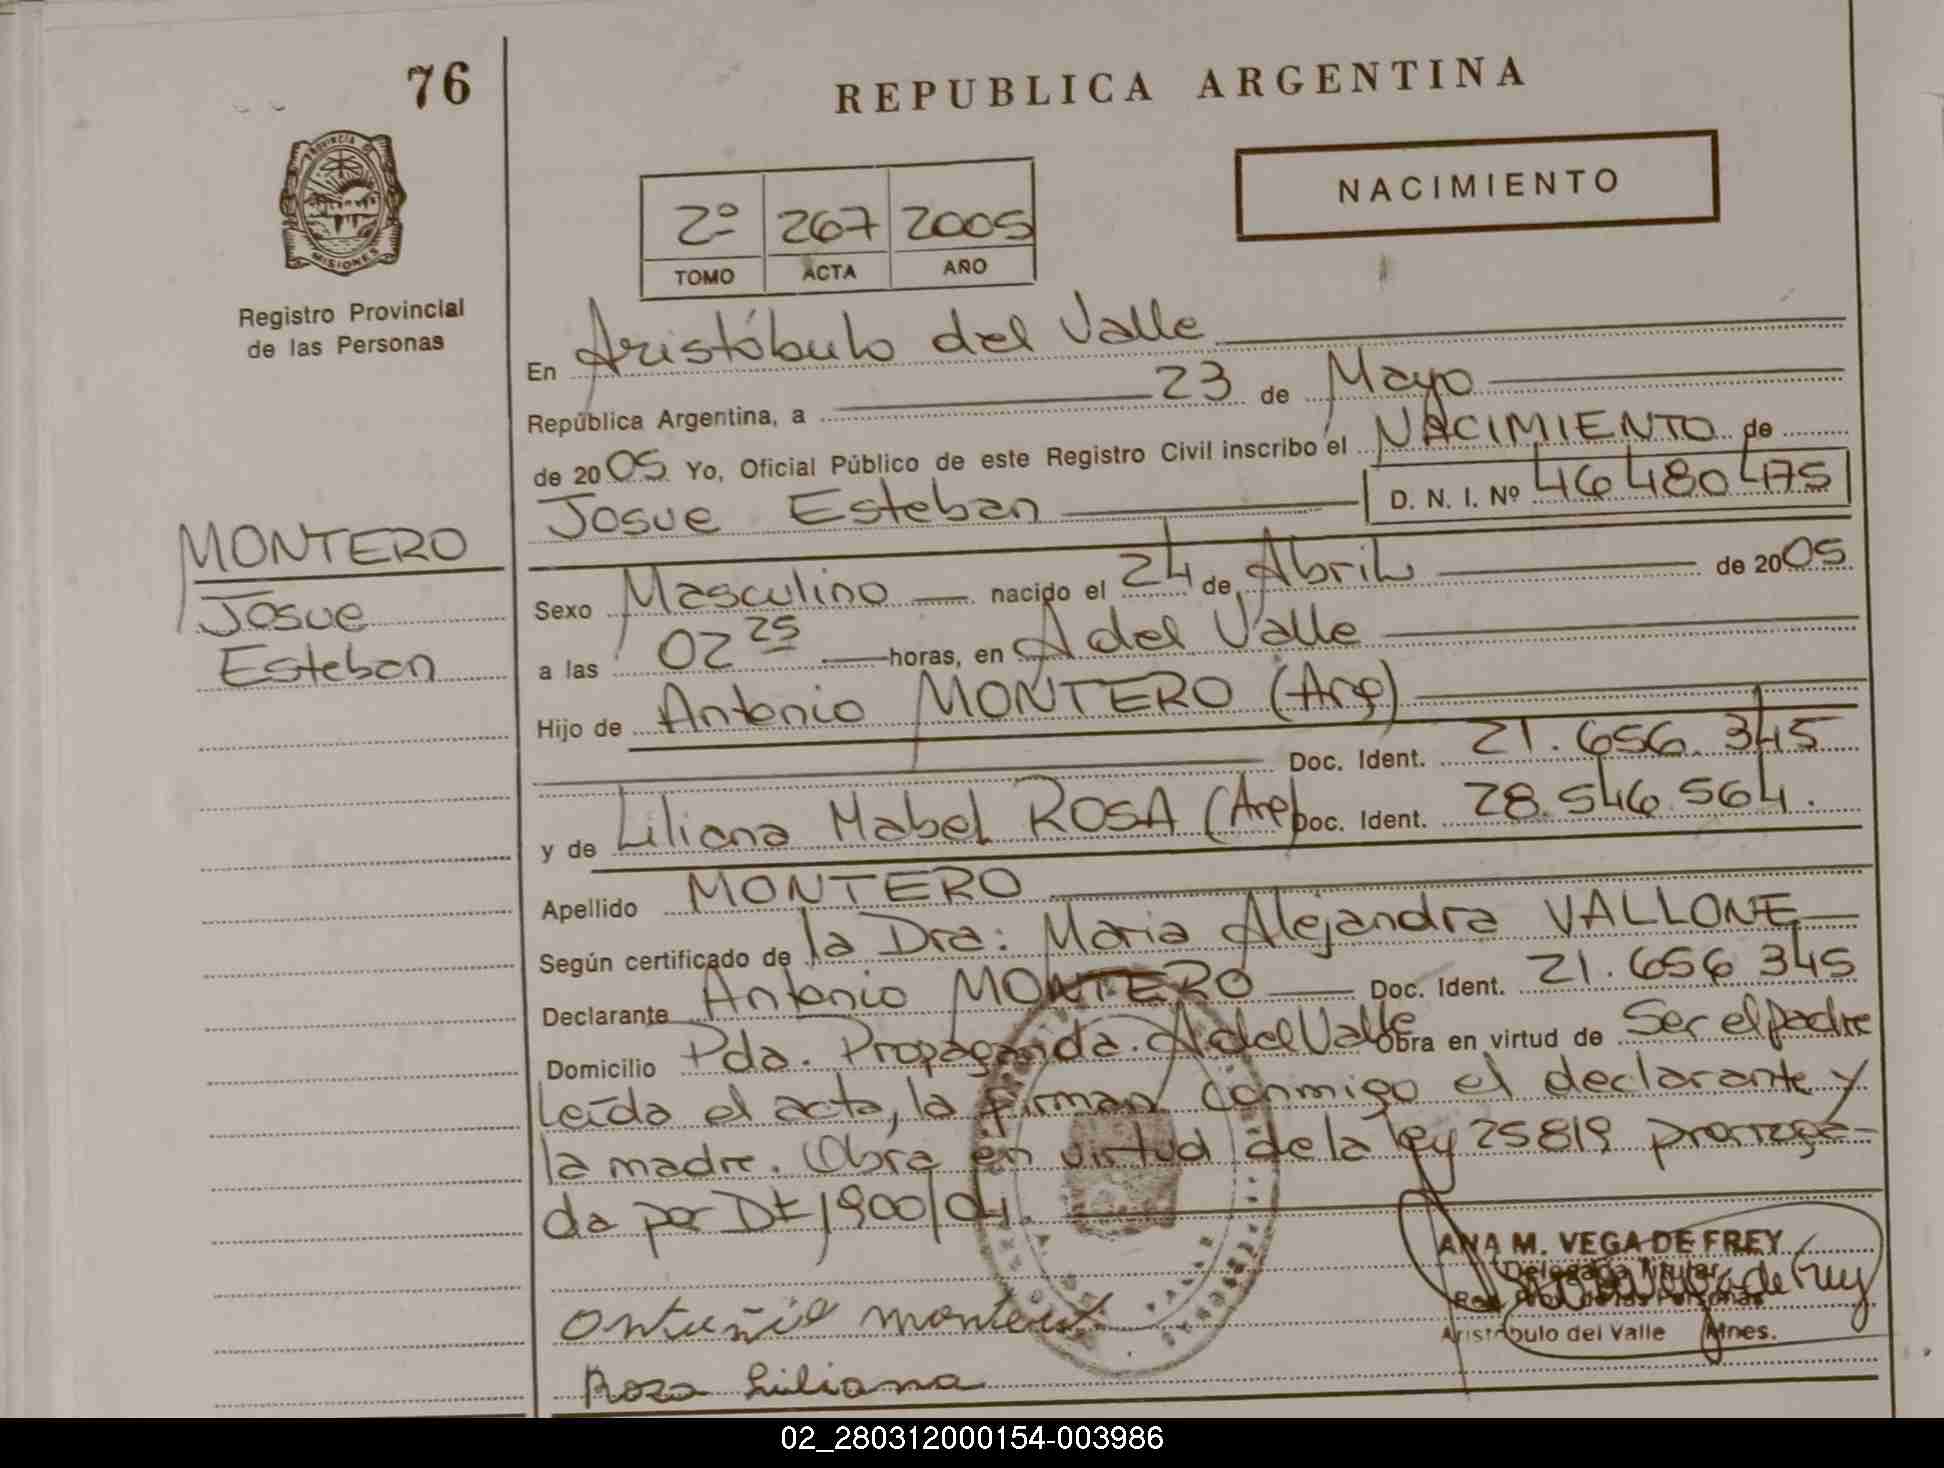 76
REPUBLICA ARGENTINA
PROVINCIA DE
MISIONES
Registro Provincial
de las Personas
NACIMIENTO
2º 267 2005
TOMO ACTA AÑO
En Aristóbulo del Valle
República Argentina, a 23 de Mayo
de 2005 Yo, Oficial Público de este Registro Civil inscribo el NACIMIENTO de
Josue Esteban D. N. I. Nº 46480475
MONTERO
Josue
Esteban
Sexo Masculino nacido el 24 de Abril de 2005
a las 02 25 horas, en A del Valle
Hijo de Antonio MONTERO (Arg)
Doc. Ident. 21.656.345
y de Liliana Mabel ROSA (Arg) Doc. Ident. 28.546.564.
Apellido MONTERO
Según certificado de la Dra: Maria Alejandra VALLONE
Declarante Antonio MONTERO Doc. Ident. 21.656.345
Domicilio Pda. Propaganda. A del Valle Obra en virtud de Ser el padre
Leída el acta, la firman conmigo el declarante y
la madre. Obra en virtud de la ley 25819 prorroga-
da por Dt 1900/04.
ANA M. VEGA DE FREY
Delegada Titular
Reg. Prov. de las Personas
Aristóbulo del Valle Mnes.
montero
Roza Liliana
02_280312000154-003986